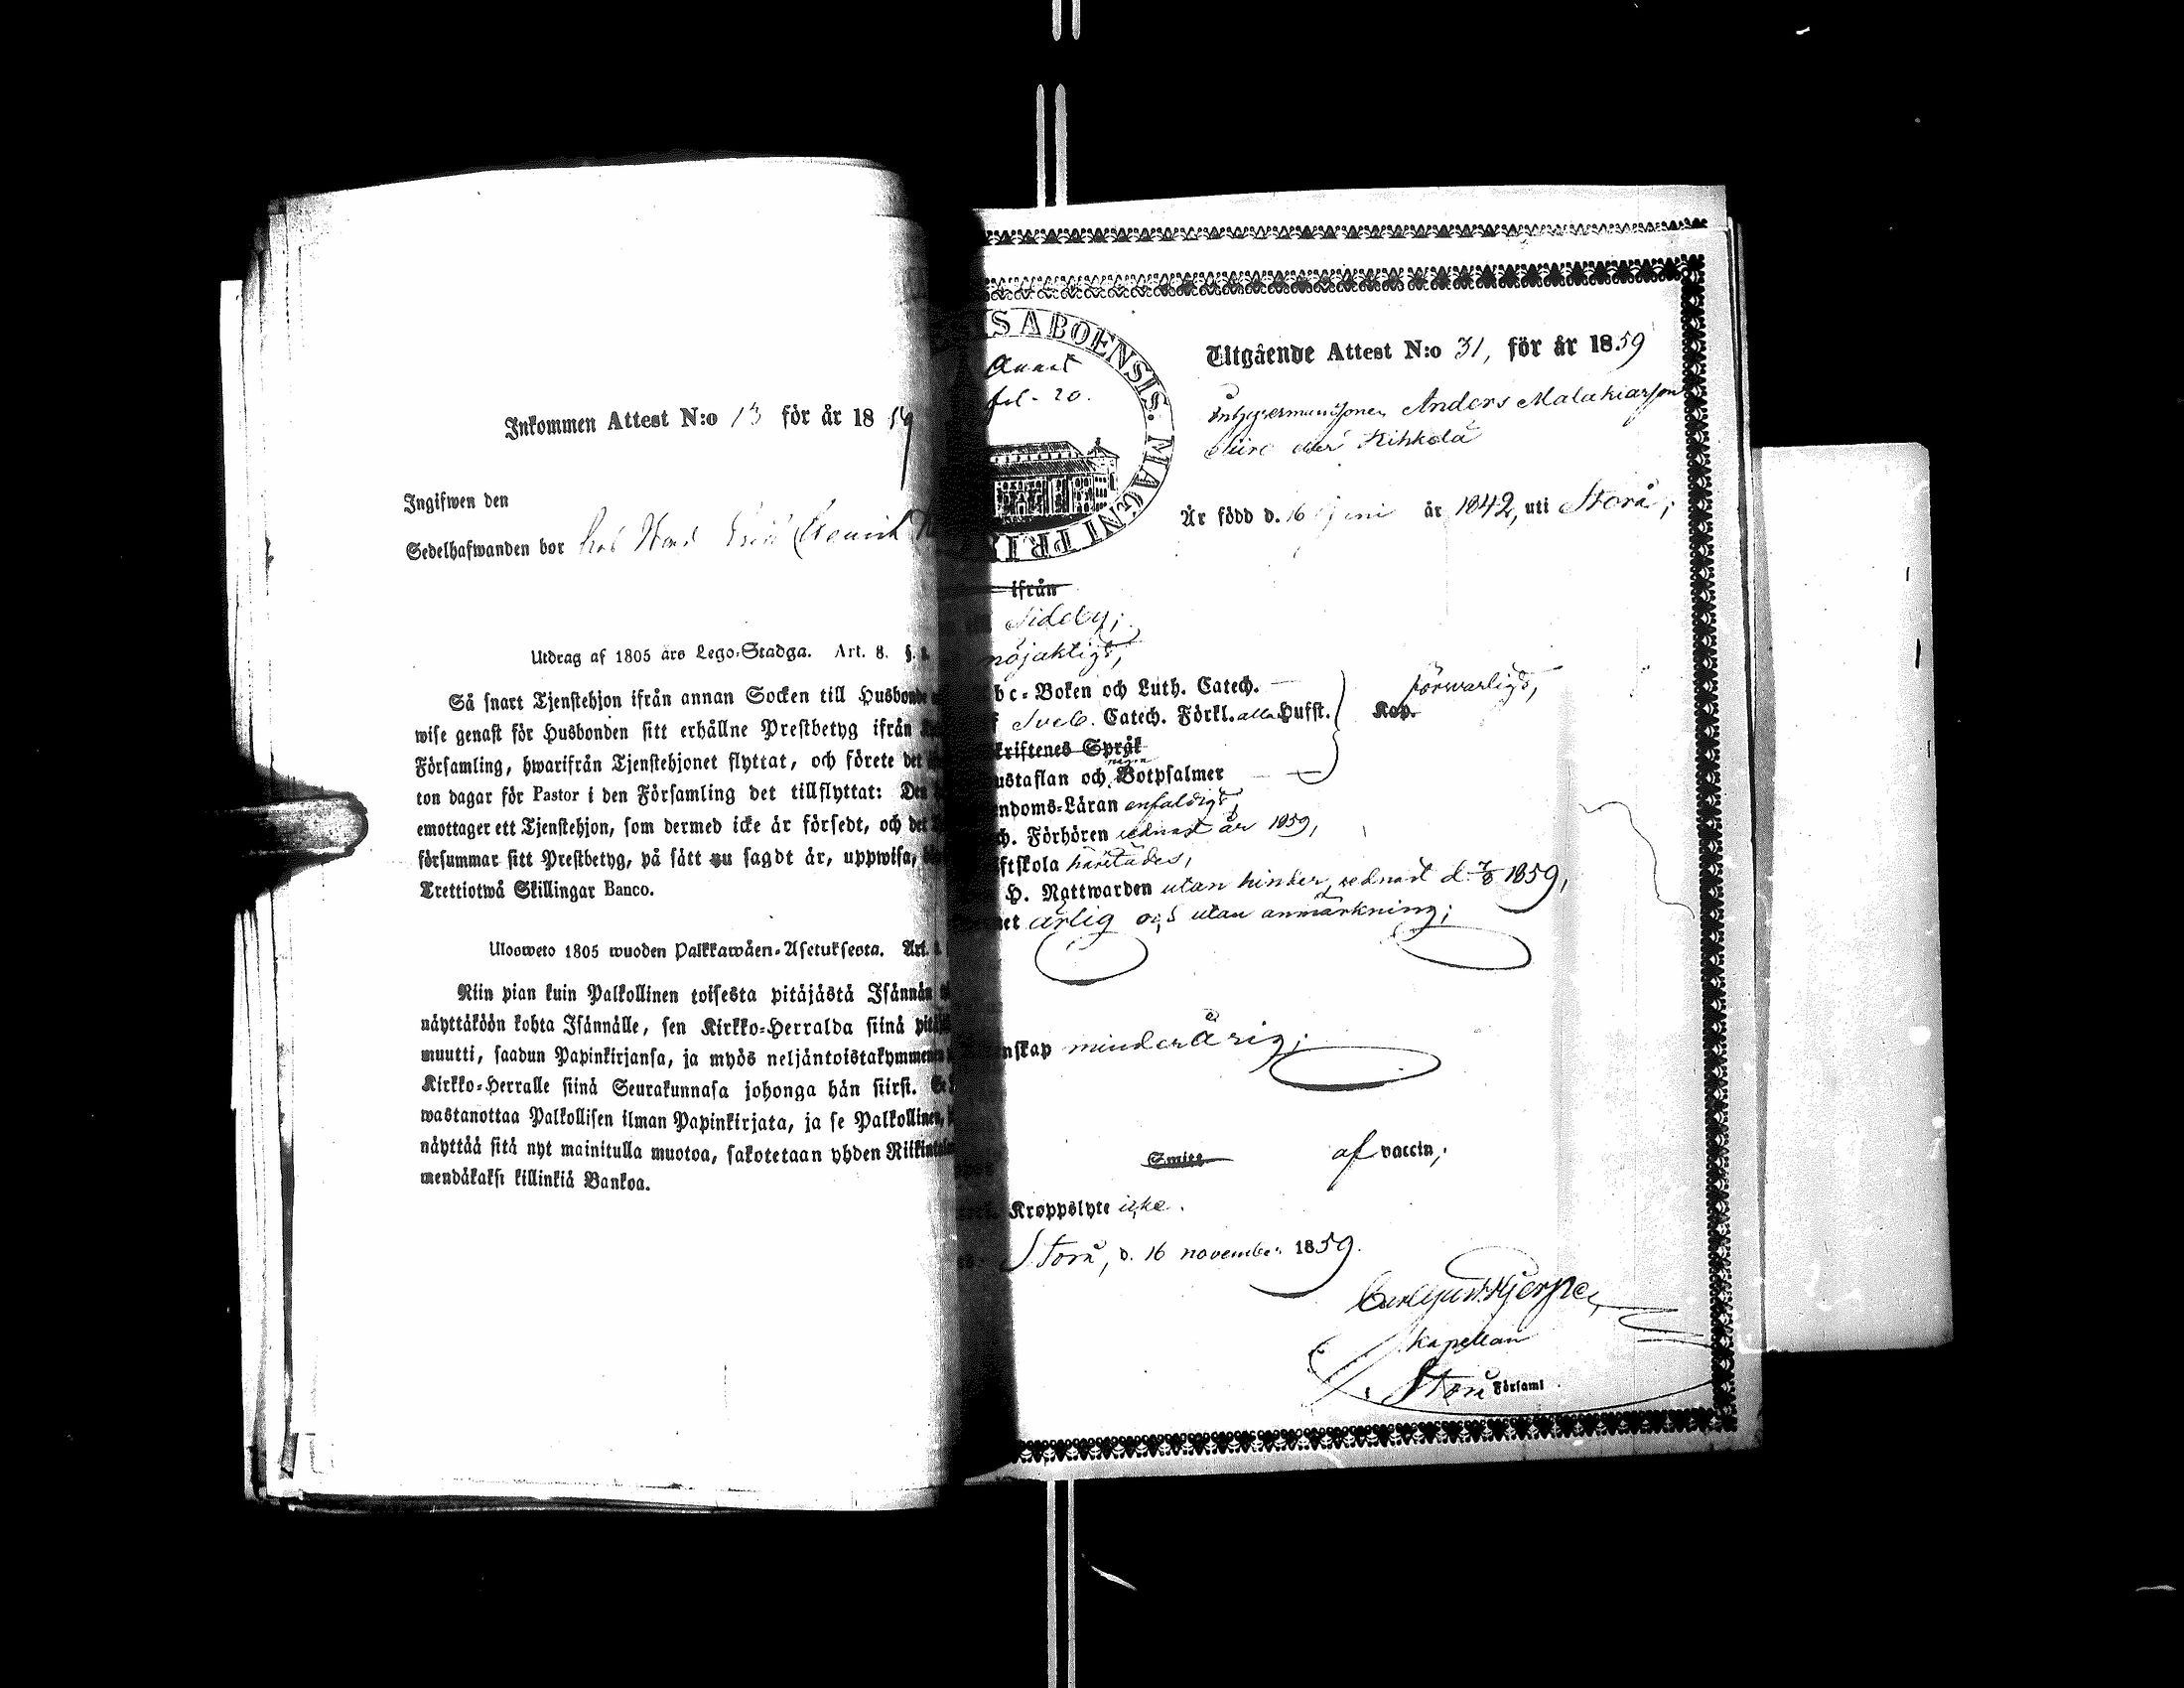 Inkommen Attest N:o 13 för år 1859
Ingifwen den
Sedelhafwanden bor
Utdrag af 1805 års Lego-Stadga. Art. 8. §. 1.
Så snart Tjenstehjon ifrån annan Socken till Husbonde
wise genast för Husbonden sitt erhållne Prestbetyg ifrån
Församling, hwarifrån Tjenstehjonet flyttat, och förete det
ton dagar för Pastor i den Församling det tillflyttat: Den
emottager ett Tjenstehjon, som dermed icke är försedt, och det
försummar sitt Prestbetyg, på sätt nu sagdt är, uppwisa,
Trettiotwå Skillingar Banco.
Ulosweto 1805 wuoden Palkkawäen-Asetuksesta. Art.
Niin pian kuin Palkollinen toisesta pitäjästä Isännän
näyttäköön kohta Isännälle, sen Kirkko-Herralda siinä
muutti, saadun Papinkirjansa, ja myös neljäntoistakymmenen
Kirkko-Herralle siinä Seurakunnasa johonga hän siirst.
wastanottaa Palkollisen ilman Papinkirjata, ja se Palkollinen,
näyttää sitä nyt mainitulla muotoa, sakotetaan yhden
mendäkaksi killinkiä Bankoa.
IS ABOENSIS. MAGNI PRI
fol. 20.
Utgående Attest N:o 31, för år 1859
Anders Malakiasson
Är född d. 16 Juni år 1842, uti Storå;
ifrån
Sideby;
nöjaktigt,
bc-Boken och Luth. Catech.
Sveb. Catech. Förkl. alla Hufst.
förswarligt,
Kap.
kriftenes Språk
ustaflan och några Botpsalmer
ndoms-Läran enfaldigt,
ch. Förhören sednast år 1859,
ftskola
H. Nattwarden utan hinder, sednast d. 7/8 1859,
et ärlig och utan anmärkning;
nskap minderårig;
Smitt af vaccin,
Kroppslyte icke.
Storå, d. 16 november 1859.
Kapellan
Storå Församl